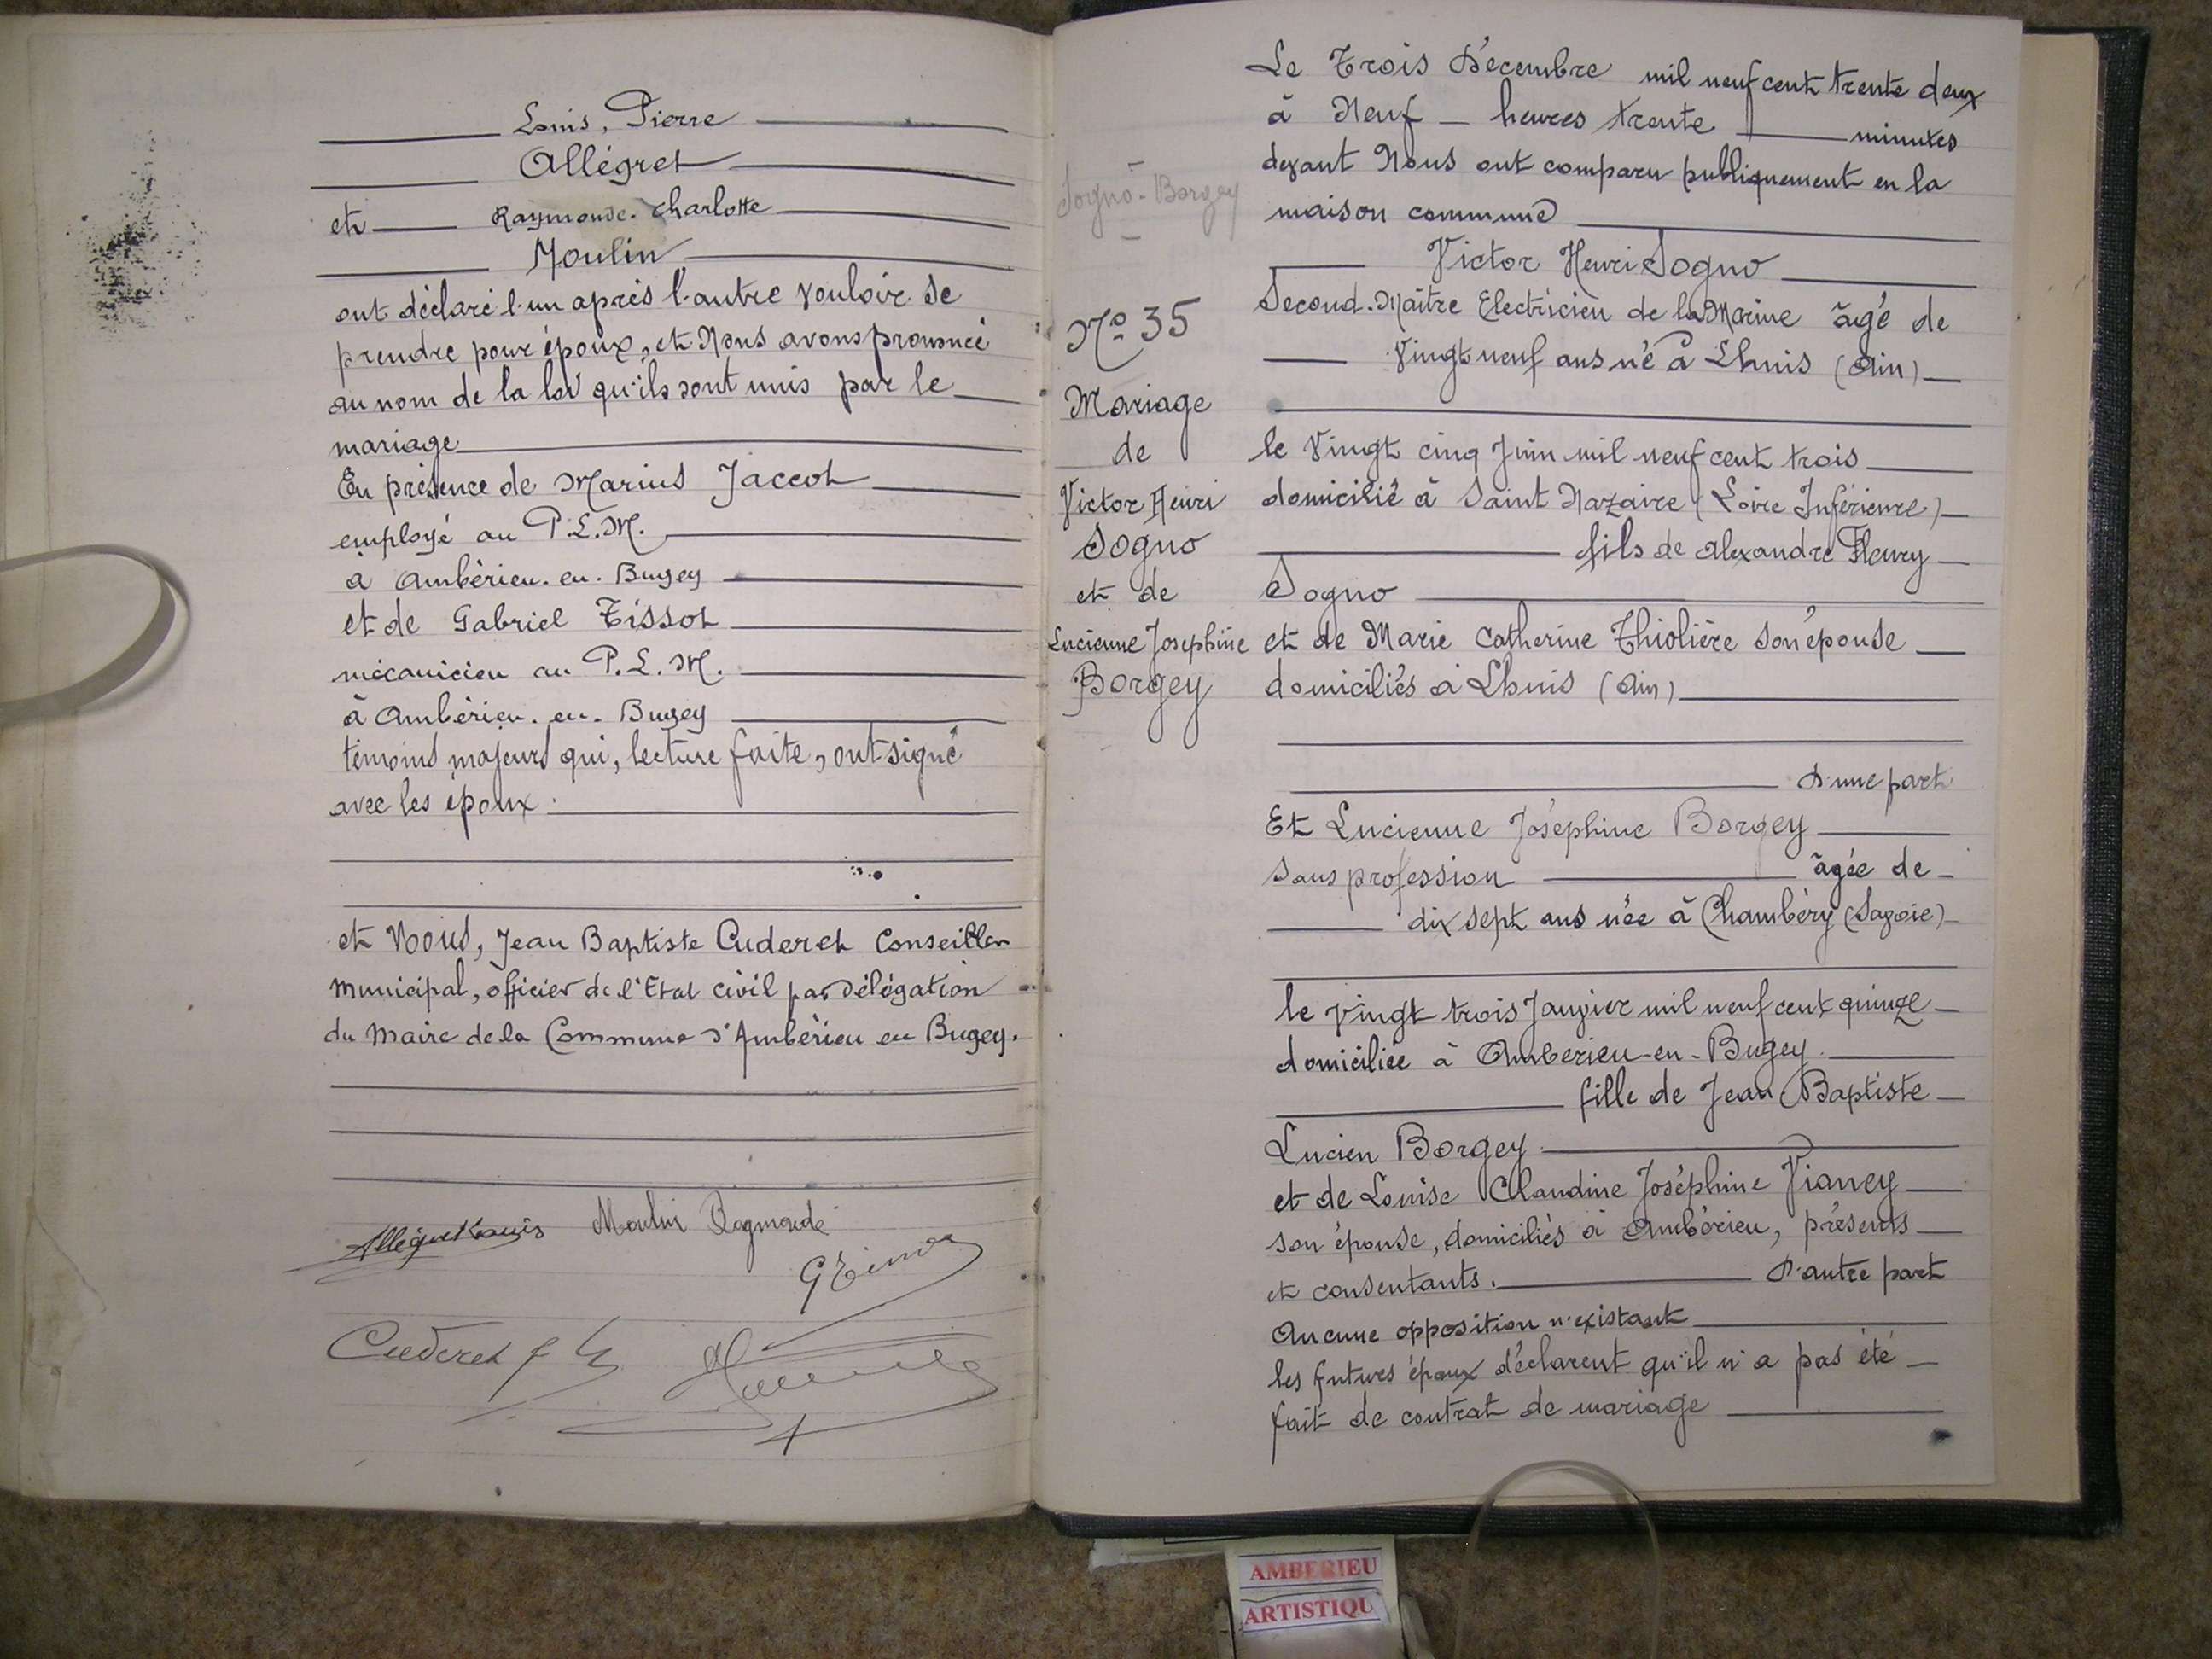 Louis, Pierre
Allégret
et Raymonde. Charlotte
Moulin
ont déclaré l'un après l'autre vouloir se
prendre pour époux, et Nous avons prononcé
au nom de la loi qu'ils sont unis par le
mariage
En présence de Marius Jaccot
employé au P.L.M.
à Ambérieu. en. Bugey
et de Gabriel Tissot
mécanicien au P.L.M.
à Ambérieu. en. Bugey
témoins majeurs qui, lecture faite, ont signé
avec les époux.
et Nous, Jean Baptiste Cuderet Conseiller
Municipal, officier de l'Etat civil par délégation
du Maire de la Commune d'Ambérieu en Bugey.
Allégret Louis Moulin Raymonde
Cuderet
Sogno - Borgey
N° 35
Mariage
de
Victor Henri
Sogno
et de
Lucienne Josephine
Borgey
Le Trois Décembre mil neuf cent trente deux
à Neuf heures trente minutes
devant Nous ont comparu publiquement en la
maison commune
Victor Henri Sogno
Second-Maître Electricien de la Marine âgé de
Vingt neuf ans né à Lhuis (Ain)
le Vingt cinq Juin mil neuf cent trois
domicilié à Saint Nazaire (Loire Inférieure)
fils de Alexandre Fleury
Sogno
et de Marie Catherine Thiolière son épouse
domiciliés à Lhuis (Ain)
D'une part
Et Lucienne Joséphine Borgey
Sans profession âgée de
dix sept ans née à Chambéry (Savoie)
le vingt trois Janvier mil neuf cent quinze
domiciliée à Ambérieu-en-Bugey
fille de Jean Baptiste
Lucien Borgey
et de Louise Claudine Joséphine Vianey
son épouse, domiciliés à Ambérieu, présents
et consentants. D'autre part
Aucune opposition n'existant
les futurs époux déclarent qu'il n'a pas été
fait de contrat de mariage
AMBERIEU
ARTISTIQU